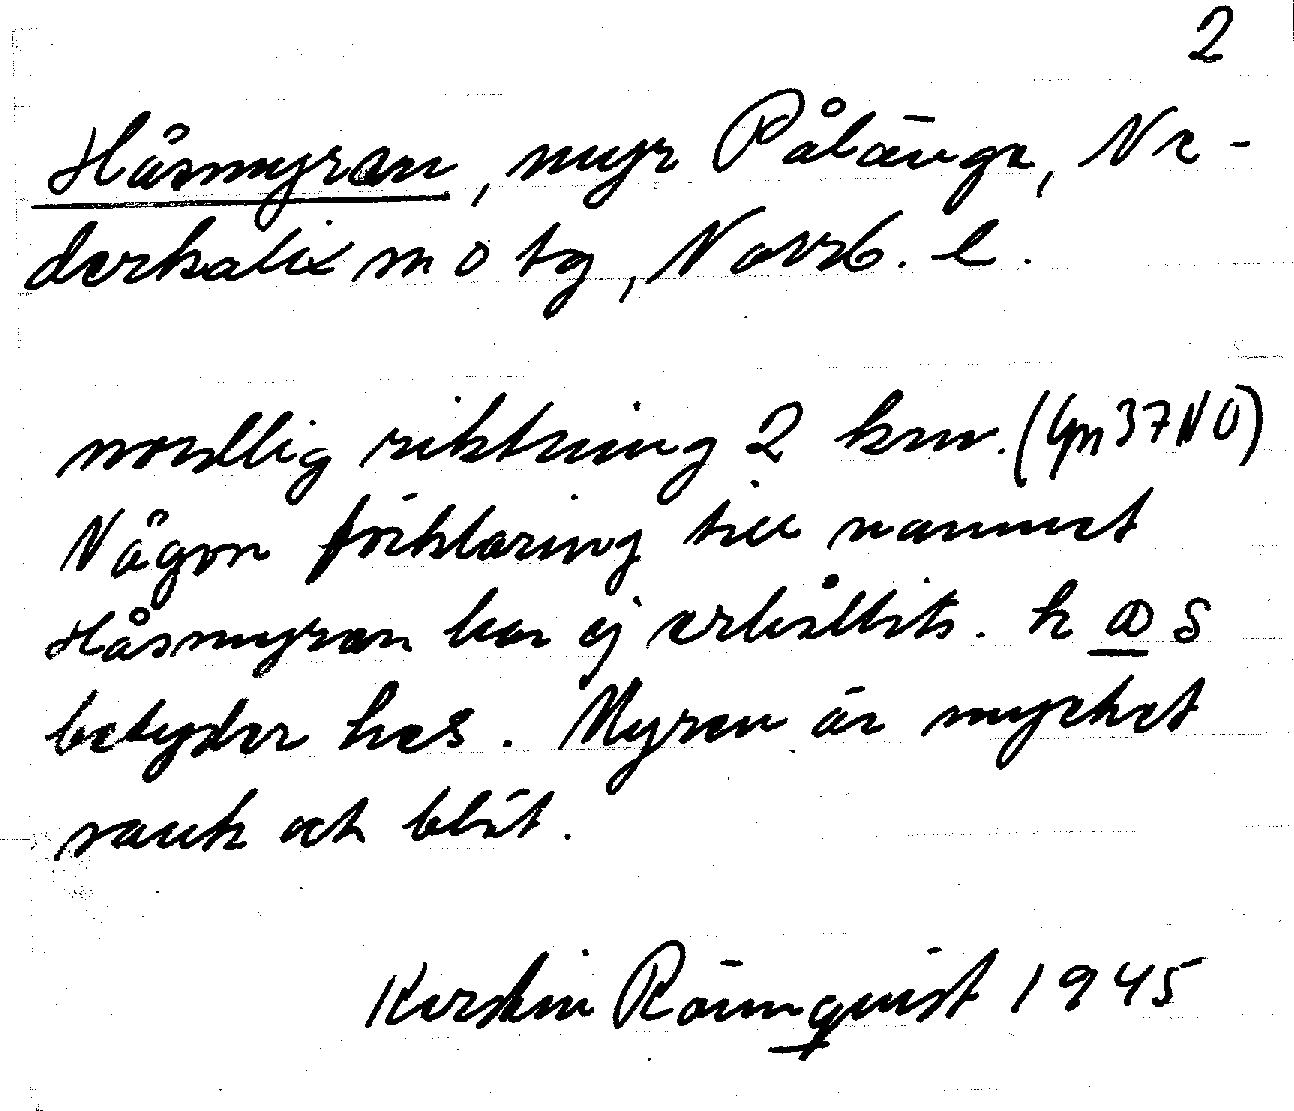 2
Håsmyran, myr Pålänge, Ne-
derkalix m o tg, Norrb. l.
nordlig riktning 2 km. (Gn 37 NO)
Någon förklaring till namnet
Håsmyran har ej erhållits. h a s
betyder hes. Myran är mycket
sank och blöt.
Kerstin Rönnqvist 1945